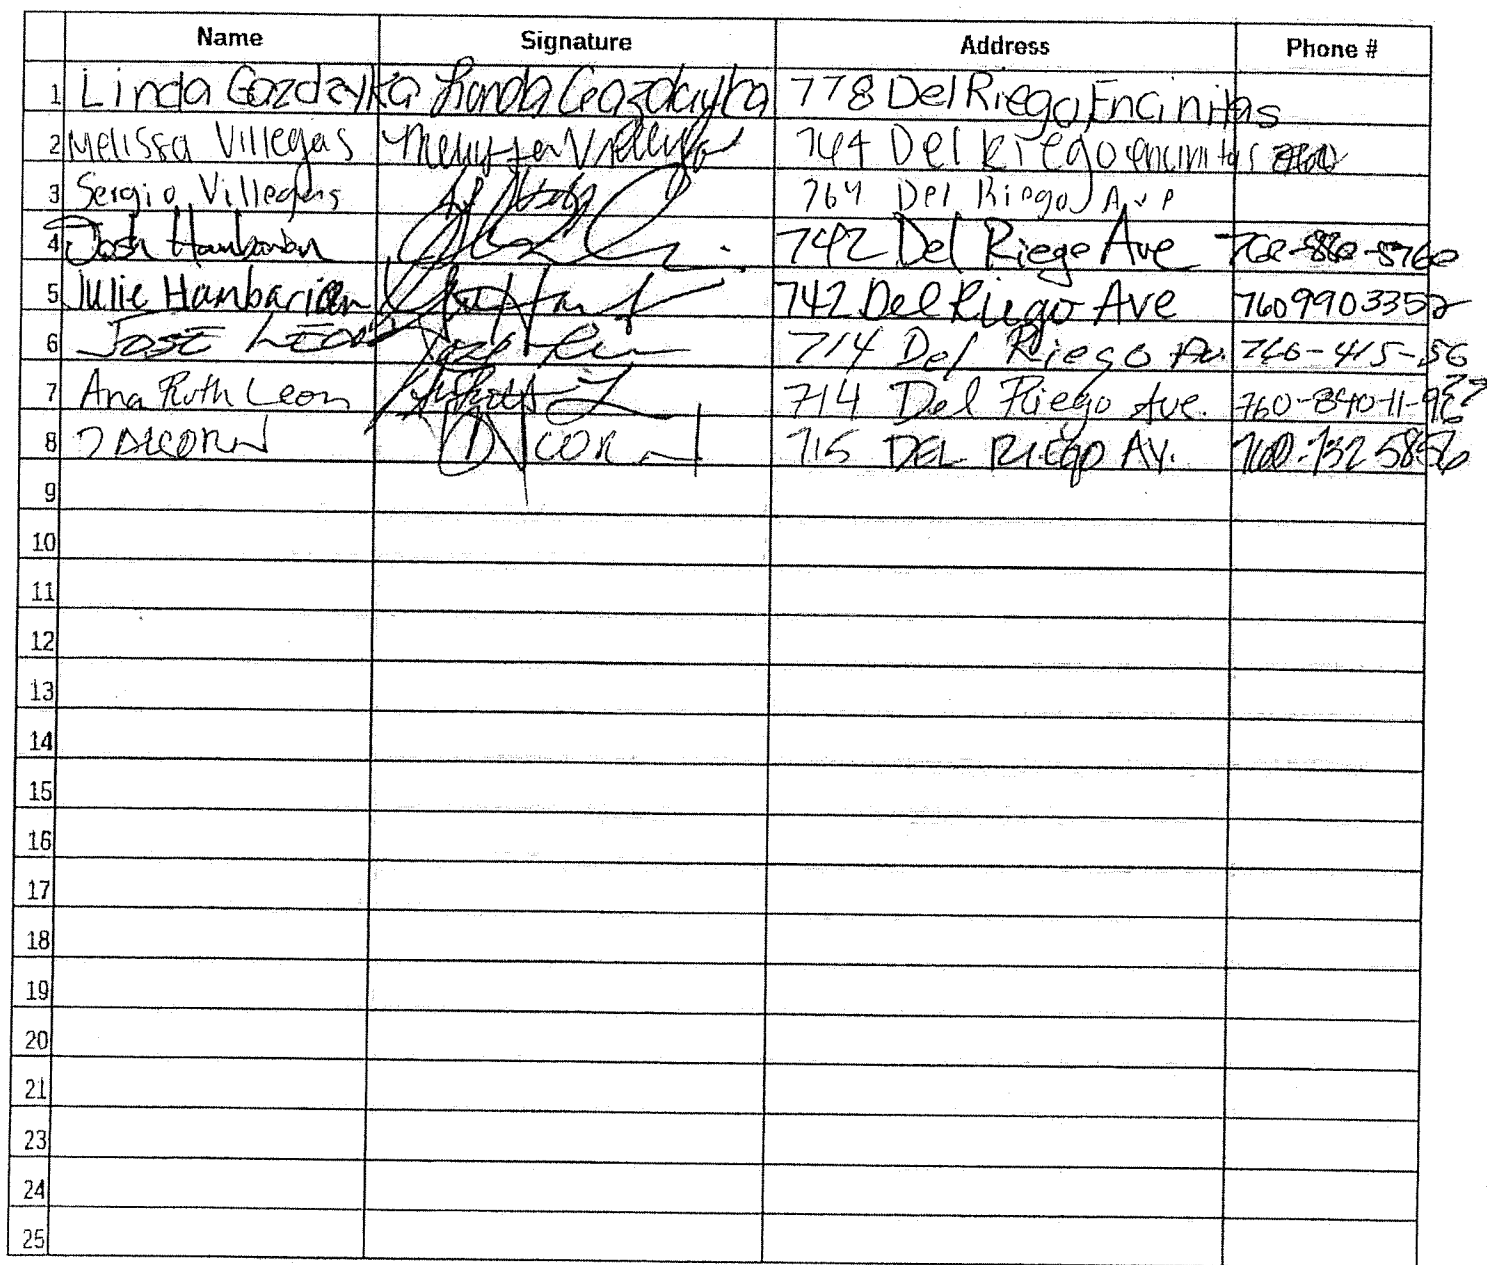 Name Signature Address Phone #
1 Linda Gozdzyka Linda Gozdzyka 778 Del Riego, Encinitas
2 Melissa Villegas 764 Del Riego encinitas
3 Sergio Villegas 764 Del Riego Ave
4 Josh Hambarian 742 Del Riego Ave
5 Julie Hambarian 742 Del Riego Ave 7609903352
6 JOSE LEON Jose Leon 714 Del Riego Av.
7 Ana Ruth Leon 714 Del Riego Ave.
8 715 DEL RIEGO AV. 760-732 5856
9
10
11
12
13
14
15
16
17
18
19
20
21
23
24
25